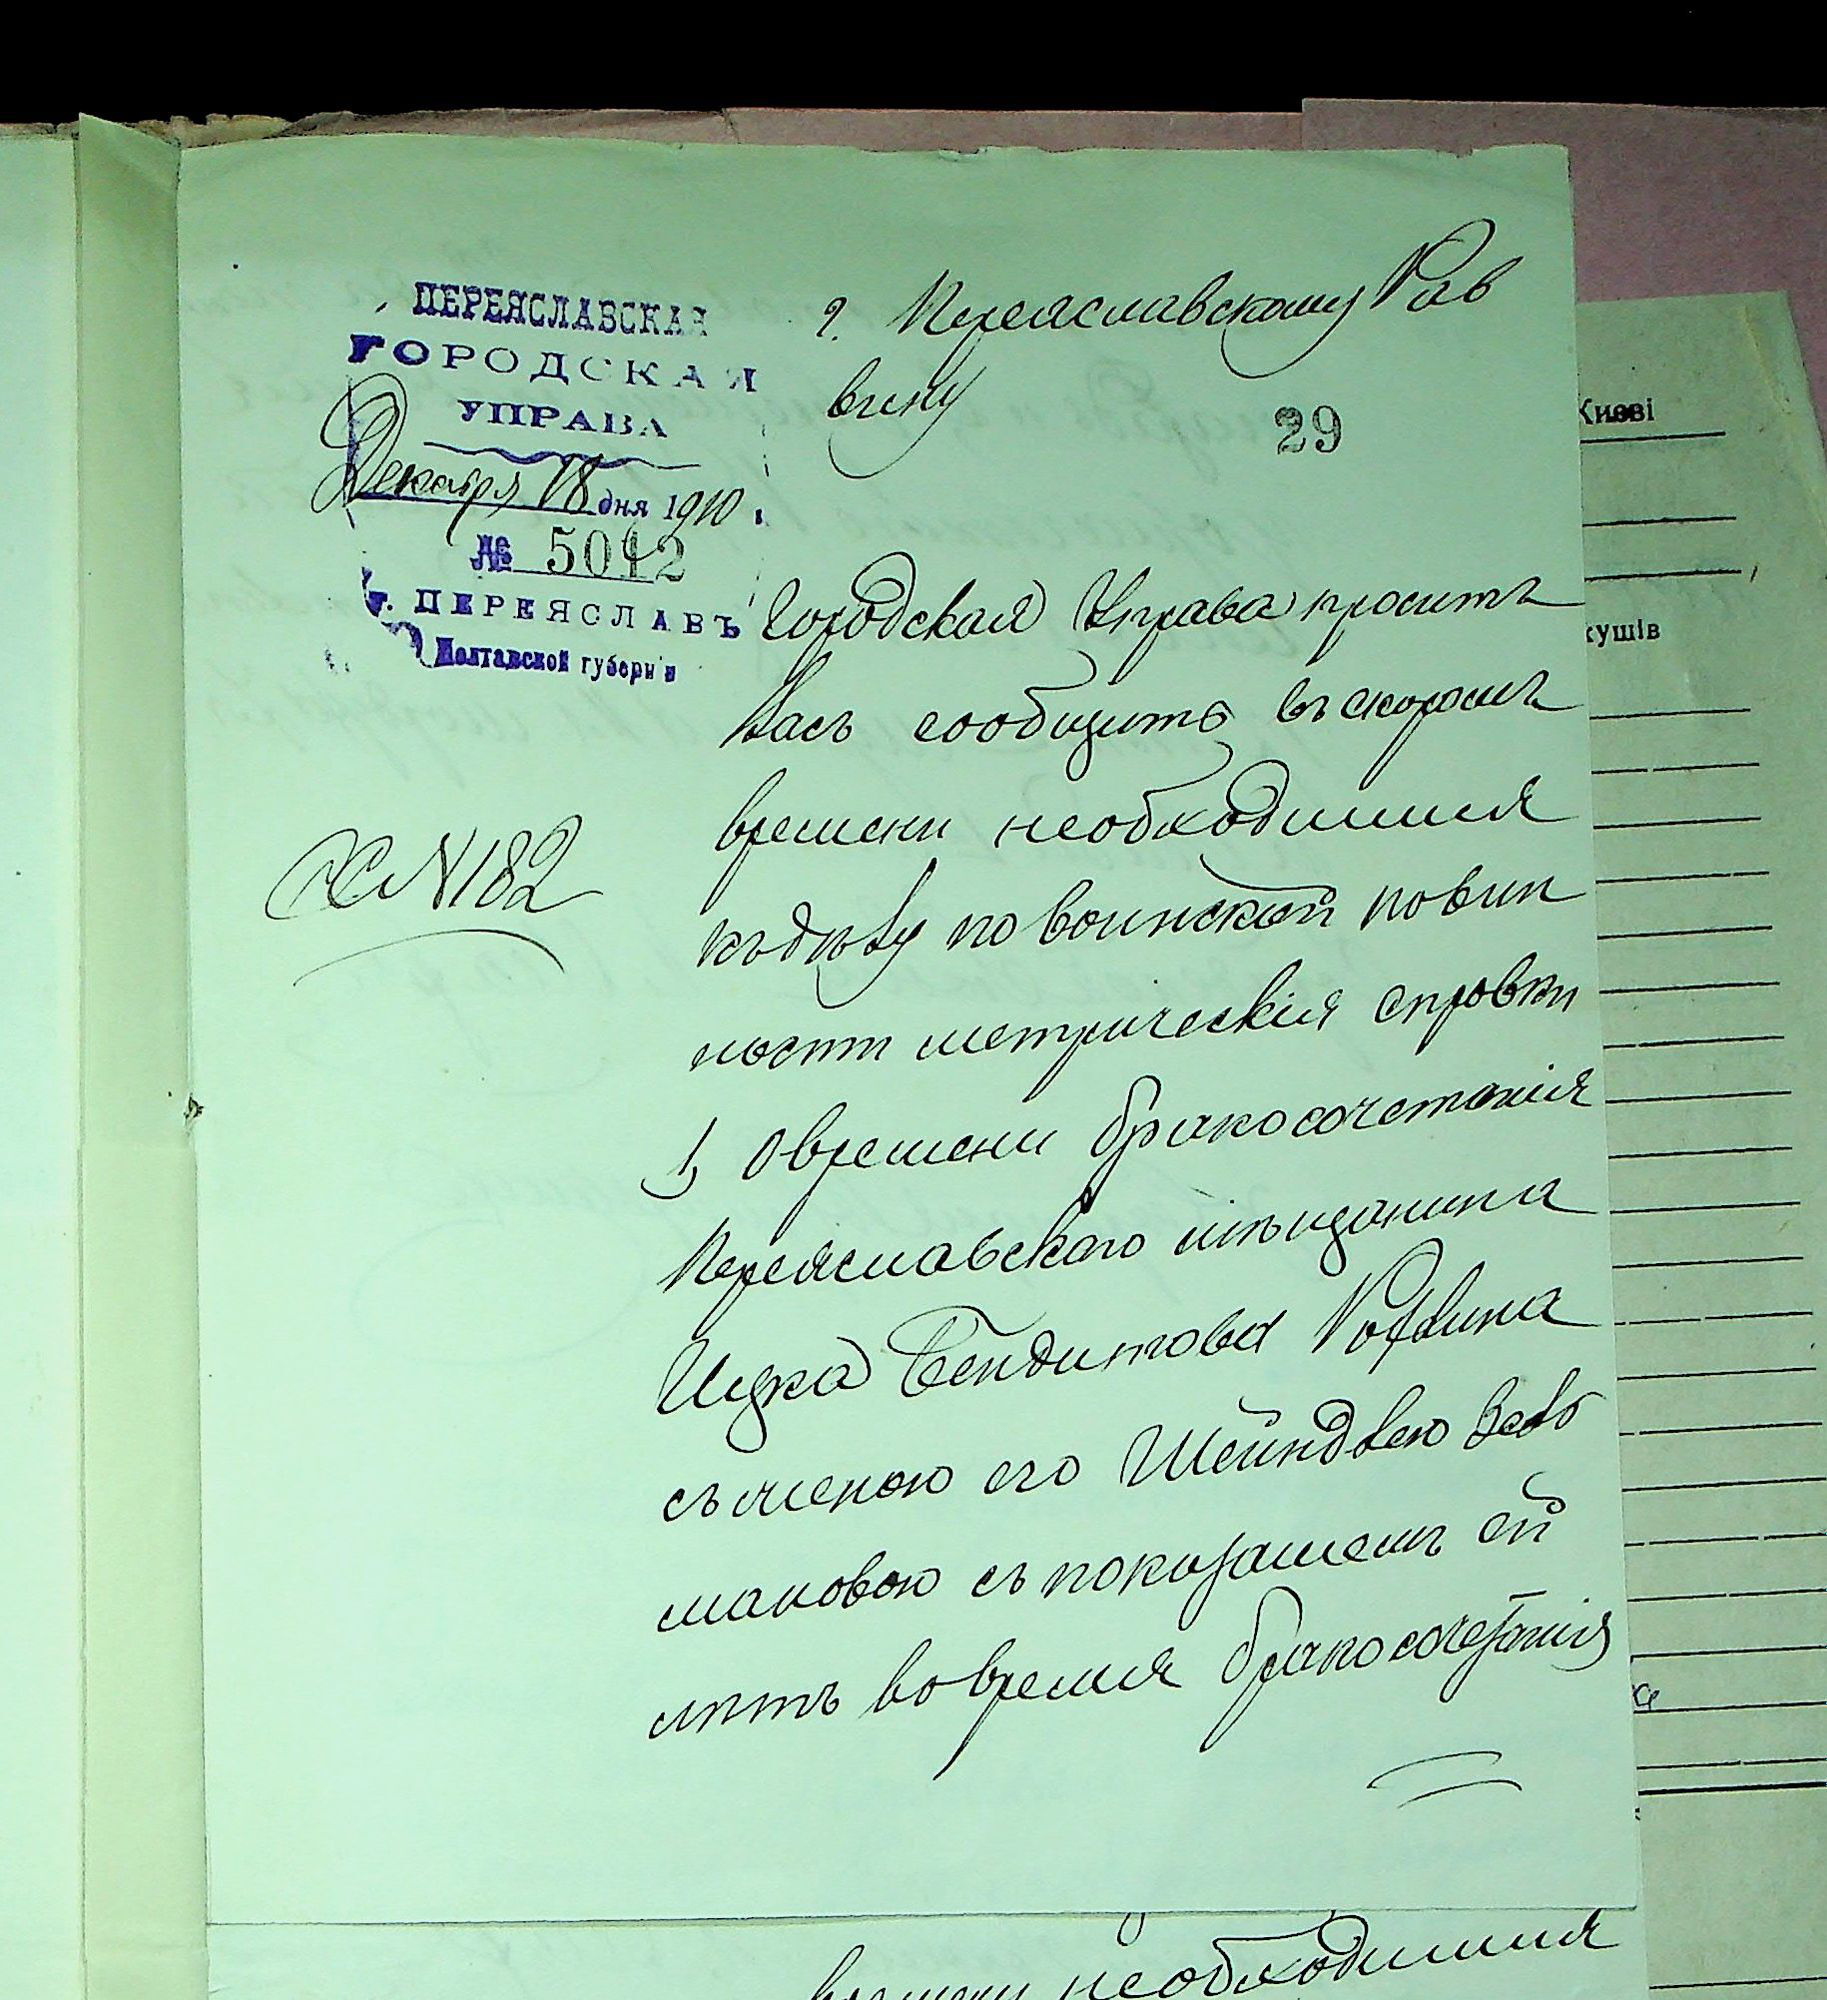 ПЕРЕЯСЛАВСКАЯ
ГОРОДСКАЯ
УПРАВА
Декабря 18 дня 1910
№ 5012
г. ПЕРЕЯСЛАВЪ
Полтавской губерніи
г. Переяславскому Рав
вину
29
Городская Управа просить
Васъ сообщить въ скоромъ
времени необходимыя
къ дѣлу по воинской повин
ности метрическія справки
1, О времени бракосочетанія
Переяславскаго мѣщанина
Ицка Бендитова
съ женою его Шейндлею Зель
мановою съ показаніемъ ей
лѣтъ во время бракосочетанія
№ 182
времени необходимыя
Києві
кушів